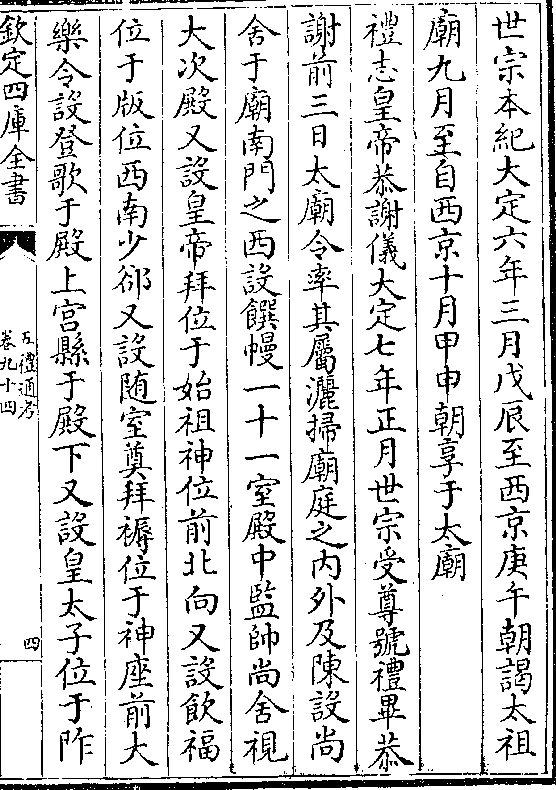 世宗本紀大定六年三月戊辰至西京庚午朝謁太祖
廟九月至自西京十月甲申朝享于太廟
禮志皇帝恭謝儀大定七年正月世宗受尊號禮畢恭
謝前三日太廟令率其屬灑掃廟庭之内外及陳設尚
舍于廟南門之西設饌幔一十一室殿中監帥尚舍視
大次殿又設皇帝拜位于始祖神位前北向又設飲福
位于版位西南少郤又設随室奠拜褥位于神座前大
樂令設登歌于殿上宫縣于殿下又設皇太子位于阼
欽定四庫全書
五禮通考
卷九十四
四